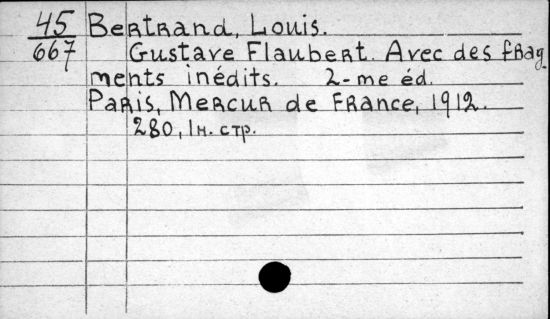 45 Bertrand, Louis.
667 Gustave Flaubert. Avec des frag-
ments inédits. 2-me éd.
Paris, Mercur de France, 1912.
280, 1н. стр.